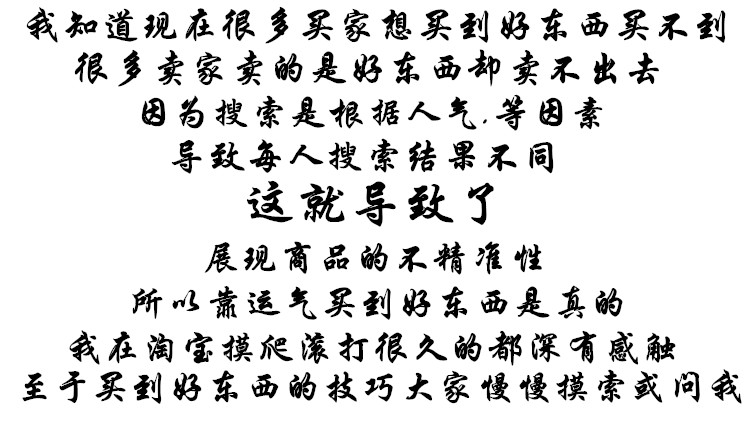 我知道现在很多买家想买到好东西买不到
很多卖家卖的是好东西却卖不出去
因为搜索是根据人气.等因素
导致每人搜索结果不同
这就导致了
展现商品的不精准性
所以靠运气买到好东西是真的
我在淘宝摸爬滚打很久的都深有感触
至于买到好东西的技巧大家慢慢摸索或问我